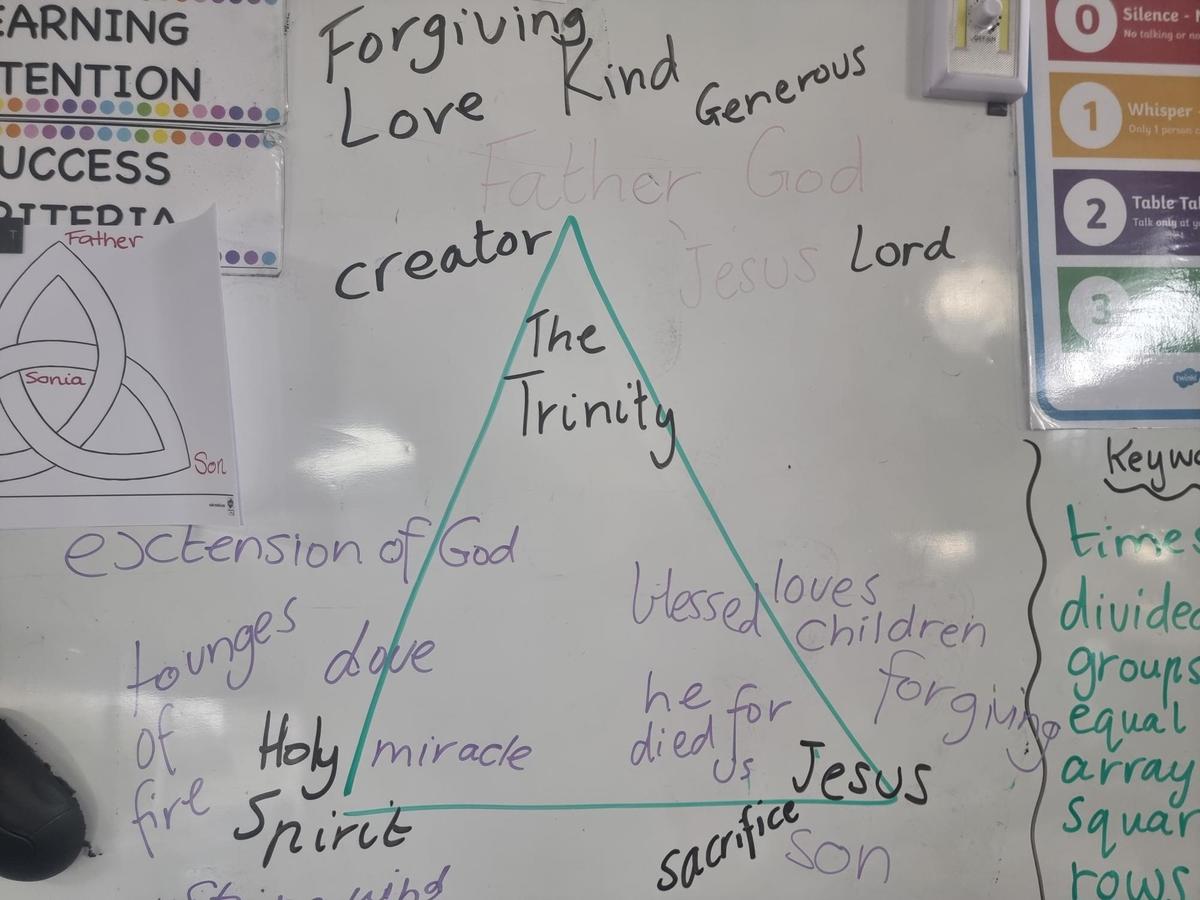 EARNING
TENTION
UCCESS
RITERIA
T
Father
Sonia
Son
Forgiving
Kind
Generous
Love
Father God
creator
Jesus
Lord
The
Trinity
extension of God
tounges
of
fire
dove
Holy
Spirit
miracle
blessed
loves
children
forgiving
he
died for
us
Jesus
sacrifice
Son
wind
0
Silence -
No talking or
1
Whisper -
Only 1 person
2
Table Tal
Talk only at
3
twinkl
Keywo
times
divided
groups
equal
array
squar
rows